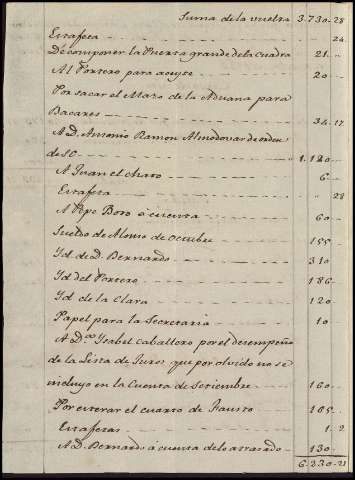 Suma de la vuelta 3.730..28
Estafeta 24
De componer la Puerta grande de la Cuadra 21..
Al Portero para aceyte 20
Por sacar el Mazo de la Aduana para
Bacares 34..17
A D. Antonio Ramon Almodovar de orden
de SO 1.120
A Juan el chato 6
Estafeta 28
A Pepe Boro á cuenta 60
Sueldo de Alonso de Octubre 155
Yd. de D. Bernardo 310
Yd. del Portero 186
Yd. de la Clara 120
Papel para la Secretaria 10
A D.ª Ysabel Caballero por el desempeño
de la Lista de Juros que por olvido no se
incluyo en la Cuenta de Setiembre 160
Por esterar el cuarto de Fausto 165
Estafetas 1..2
A D. Bernardo á cuenta de lo atrasado 130
6.230..21